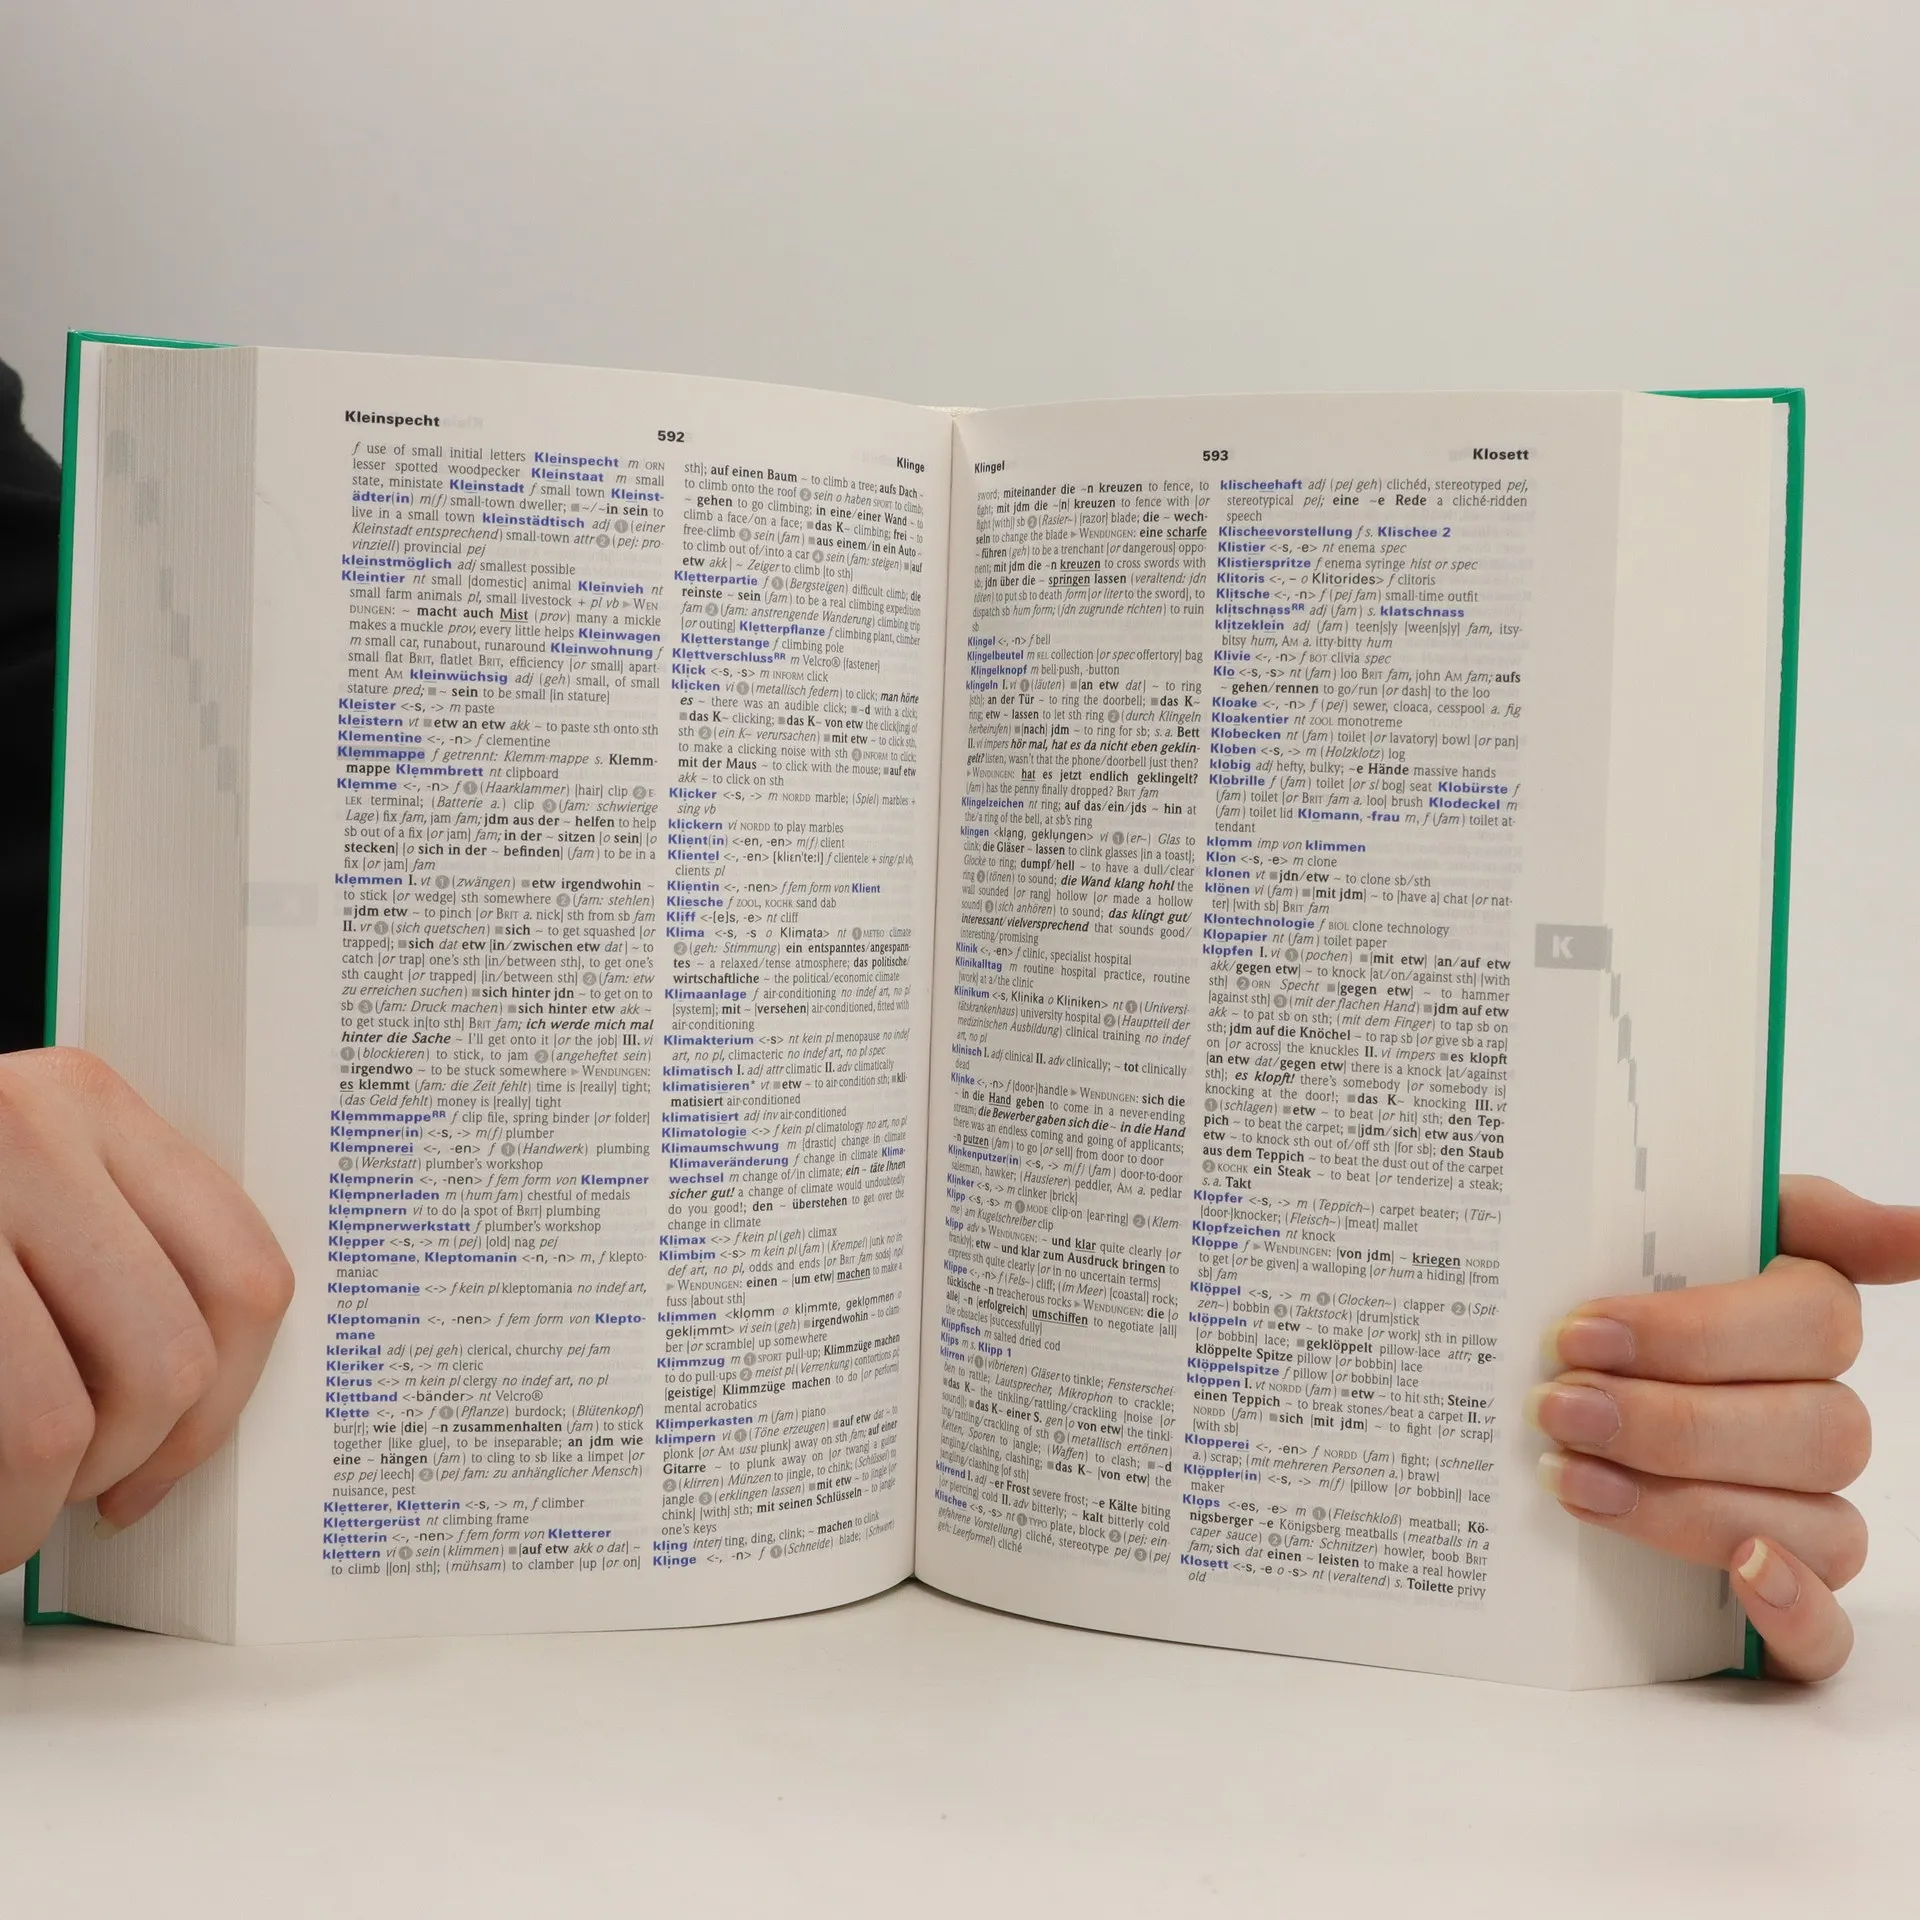 Kleinspecht
592
Klinge
f use of small initial letters Kleinspecht m ORN
lesser spotted woodpecker Kleinstaat m small
state, ministate Kleinstadt f small town Kleinst-
ädter(in) m(f) small-town dweller; ■~/~in sein to
live in a small town kleinstädtisch adj ❶ (einer
Kleinstadt entsprechend) small-town attr ❷ (pej: pro-
vinziell) provincial pej
kleinstmöglich adj smallest possible
Kleintier nt small |domestic| animal Kleinvieh nt
small farm animals pl, small livestock + pl vb ▶ WEN
DUNGEN: ~ macht auch Mist (prov) many a mickle
makes a muckle prov, every little helps Kleinwagen
m small car, runabout, runaround Kleinwohnung f
small flat BRIT, flatlet BRIT, efficiency |or small| apart-
ment AM kleinwüchsig adj (geh) small, of small
stature pred; ■~ sein to be small |in stature|
Kleister <-s, -> m paste
kleistern vt ■etw an etw akk ~ to paste sth onto sth
Klementine <-, -n> f clementine
Klemmappe f getrennt: Klemm·mappe s. Klemm-
mappe Klemmbrett nt clipboard
Klemme <-, -n> f ❶ (Haarklammer) |hair| clip ❷ E-
LEK terminal; (Batterie a.) clip ❸ (fam: schwierige
Lage) fix fam, jam fam; jdm aus der ~ helfen to help
sb out of a fix |or jam| fam; in der ~ sitzen |o sein| |o
stecken| |o sich in der ~ befinden| (fam) to be in a
fix |or jam| fam
klemmen I. vt ❶ (zwängen) ■etw irgendwohin ~
to stick |or wedge| sth somewhere ❷ (fam: stehlen)
■jdm etw ~ to pinch |or BRIT a. nick| sth from sb fam
II. vr ❶ (sich quetschen) ■sich ~ to get squashed |or
trapped|; ■sich dat etw |in/zwischen etw dat| ~ to
catch |or trap| one's sth |in/between sth|, to get one's
sth caught |or trapped| |in/between sth| ❷ (fam: etw
zu erreichen suchen) ■sich hinter jdn ~ to get on to
sb ❸ (fam: Druck machen) ■sich hinter etw akk ~
to get stuck in|to sth| BRIT fam; ich werde mich mal
hinter die Sache ~ I'll get onto it |or the job| III. vi
❶ (blockieren) to stick, to jam ❷ (angeheftet sein)
■irgendwo ~ to be stuck somewhere ▶ WENDUNGEN:
es klemmt (fam: die Zeit fehlt) time is |really| tight;
(das Geld fehlt) money is |really| tight
KlemmmappeRR f clip file, spring binder |or folder|
Klempner(in) <-s, -> m(f) plumber
Klempnerei <-, -en> f ❶ (Handwerk) plumbing
❷ (Werkstatt) plumber's workshop
Klempnerin <-, -nen> f fem form von Klempner
Klempnerladen m (hum fam) chestful of medals
klempnern vi to do |a spot of BRIT| plumbing
Klempnerwerkstatt f plumber's workshop
Klepper <-s, -> m (pej) |old| nag pej
Kleptomane, Kleptomanin <-n, -n> m, f klepto-
maniac
Kleptomanie <-> f kein pl kleptomania no indef art,
no pl
Kleptomanin <-, -nen> f fem form von Klepto-
mane
klerikal adj (pej geh) clerical, churchy pej fam
Kleriker <-s, -> m cleric
Klerus <-> m kein pl clergy no indef art, no pl
Klettband <-bänder> nt Velcro®
Klette <-, -n> f ❶ (Pflanze) burdock; (Blütenkopf)
bur|r|; wie |die| ~n zusammenhalten (fam) to stick
together |like glue|, to be inseparable; an jdm wie
eine ~ hängen (fam) to cling to sb like a limpet |or
esp pej leech| ❷ (pej fam: zu anhänglicher Mensch)
nuisance, pest
Kletterer, Kletterin <-s, -> m, f climber
Klettergerüst nt climbing frame
Kletterin <-, -nen> f fem form von Kletterer
klettern vi ❶ sein (klimmen) ■|auf etw akk o dat| ~
to climb ||on| sth|; (mühsam) to clamber |up |or on|
sth|; auf einen Baum ~ to climb a tree; aufs Dach ~
to climb onto the roof ❷ sein o haben SPORT to climb;
~ gehen to go climbing; in eine/einer Wand ~ to
climb a face/on a face; ■das K~ climbing; frei ~ to
free-climb ❸ sein (fam) ■aus einem/in ein Auto ~
to climb out of/into a car ❹ sein (fam: steigen) ■|auf
etw akk| ~ Zeiger to climb |to sth|
Kletterpartie f ❶ (Bergsteigen) difficult climb; die
reinste ~ sein (fam) to be a real climbing expedition
fam ❷ (fam: anstrengende Wanderung) climbing trip
|or outing| Kletterpflanze f climbing plant, climber
Kletterstange f climbing pole
KlettverschlussRR m Velcro® |fastener|
Klick <-s, -s> m INFORM click
klicken vi ❶ (metallisch federn) to click; man hörte
es ~ there was an audible click; ■~d with a click;
■das K~ clicking; ■das K~ von etw the click|ing| of
sth ❷ (ein K~ verursachen) ■mit etw ~ to click sth,
to make a clicking noise with sth ❸ INFORM to click;
mit der Maus ~ to click with the mouse; ■auf etw
akk ~ to click on sth
Klicker <-s, -> m NORDD marble; (Spiel) marbles +
sing vb
klickern vi NORDD to play marbles
Klient(in) <-en, -en> m(f) client
Klientel <-, -en> [kliɛn'te:l] f clientele + sing/pl vb,
clients pl
Klientin <-, -nen> f fem form von Klient
Kliesche f ZOOL, KOCHK sand dab
Kliff <-[e]s, -e> nt cliff
Klima <-s, -s o Klimata> nt ❶ METEO climate
❷ (geh: Stimmung) ein entspanntes/angespann-
tes ~ a relaxed/tense atmosphere; das politische/
wirtschaftliche ~ the political/economic climate
Klimaanlage f air-conditioning no indef art, no pl
|system|; mit ~ |versehen| air-conditioned, fitted with
air-conditioning
Klimakterium <-s> nt kein pl menopause no indef
art, no pl, climacteric no indef art, no pl spec
klimatisch I. adj attr climatic II. adv climatically
klimatisieren* vt ■etw ~ to air-condition sth; ■kli-
matisiert air-conditioned
klimatisiert adj inv air-conditioned
Klimatologie <-> f kein pl climatology no art, no pl
Klimaumschwung m |drastic| change in climate
Klimaveränderung f change in climate Klima-
wechsel m change of/in climate; ein ~ täte Ihnen
sicher gut! a change of climate would undoubtedly
do you good!; den ~ überstehen to get over the
change in climate
Klimax <-> f kein pl (geh) climax
Klimbim <-s> m kein pl (fam) (Krempel) junk no in-
def art, no pl, odds and ends |or BRIT fam sods| npl
▶ WENDUNGEN: einen ~ |um etw| machen to make a
fuss |about sth|
klimmen <klomm o klimmte, geklommen o
geklimmt> vi sein (geh) ■irgendwohin ~ to clam-
ber |or scramble| up somewhere
Klimmzug m ❶ SPORT pull-up; Klimmzüge machen
to do pull-ups ❷ meist pl (Verrenkung) contortions pl;
|geistige| Klimmzüge machen to do |or perform|
mental acrobatics
Klimperkasten m (fam) piano
klimpern vi ❶ (Töne erzeugen) ■auf etw dat ~ to
plonk |or AM usu plunk| away on sth fam; auf einer
Gitarre ~ to plunk away on |or twang| a guitar
❷ (klirren) Münzen to jingle, to chink; (Schlüssel) to
jangle ❸ (erklingen lassen) ■mit etw ~ to jingle |or
chink| |with| sth; mit seinen Schlüsseln ~ to jangle
one's keys
kling interj ting, ding, clink; ~ machen to clink
Klinge <-, -n> f ❶ (Schneide) blade; (Schwert)
Klingel
593
Klosett
sword; miteinander die ~n kreuzen to fence, to
fight; mit jdm die ~|n| kreuzen to fence with |or
fight |with|| sb ❷ (Rasier~) |razor| blade; die ~ wech-
seln to change the blade ▶ WENDUNGEN: eine scharfe
~ führen (geh) to be a trenchant |or dangerous| oppo-
nent; mit jdm die ~n kreuzen to cross swords with
sb; jdn über die ~ springen lassen (veraltend: jdn
töten) to put sb to death form |or liter to the sword|, to
dispatch sb hum form; (jdn zugrunde richten) to ruin
sb
Klingel <-, -n> f bell
Klingelbeutel m REL collection |or spec offertory| bag
Klingelknopf m bell-push, -button
klingeln I. vi ❶ (läuten) ■|an etw dat| ~ to ring
|sth|; an der Tür ~ to ring the doorbell; ■das K~
ring; etw ~ lassen to let sth ring ❷ (durch Klingeln
herbeirufen) ■|nach| jdm ~ to ring for sb; s. a. Bett
II. vi impers hör mal, hat es da nicht eben geklin-
gelt? listen, wasn't that the phone/doorbell just then?
▶ WENDUNGEN: hat es jetzt endlich geklingelt?
(fam) has the penny finally dropped? BRIT fam
Klingelzeichen nt ring; auf das/ein/jds ~ hin at
the/a ring of the bell, at sb's ring
klingen <klang, geklungen> vi ❶ (er~) Glas to
clink; die Gläser ~ lassen to clink glasses |in a toast|;
Glocke to ring; dumpf/hell ~ to have a dull/clear
ring ❷ (tönen) to sound; die Wand klang hohl the
wall sounded |or rang| hollow |or made a hollow
sound| ❸ (sich anhören) to sound; das klingt gut/
interessant/vielversprechend that sounds good/
interesting/promising
Klinik <-, -en> f clinic, specialist hospital
Klinikalltag m routine hospital practice, routine
|work| at a/the clinic
Klinikum <-s, Klinika o Kliniken> nt ❶ (Universi-
tätskrankenhaus) university hospital ❷ (Hauptteil der
medizinischen Ausbildung) clinical training no indef
art, no pl
klinisch I. adj clinical II. adv clinically; ~ tot clinically
dead
Klinke <-, -n> f |door-|handle ▶ WENDUNGEN: sich die
~ in die Hand geben to come in a never-ending
stream; die Bewerber gaben sich die ~ in die Hand
there was an endless coming and going of applicants;
~n putzen (fam) to go |or sell| from door to door
Klinkenputzer(in) <-s, -> m(f) (fam) door-to-door
salesman, hawker; (Hausierer) peddler, AM a. pedlar
Klinker <-s, -> m clinker |brick|
Klipp <-s, -s> m ❶ MODE clip-on |ear-ring| ❷ (Klem-
me) am Kugelschreiber clip
klipp adv ▶ WENDUNGEN: ~ und klar quite clearly |or
frankly|; etw ~ und klar zum Ausdruck bringen to
express sth quite clearly |or in no uncertain terms|
Klippe <-, -n> f (Fels~) cliff; (im Meer) |coastal| rock;
tückische ~n treacherous rocks ▶ WENDUNGEN: die |o
alle| ~n |erfolgreich| umschiffen to negotiate |all|
the obstacles |successfully|
Klippfisch m salted dried cod
Klips m s. Klipp 1
klirren vi ❶ (vibrieren) Gläser to tinkle; Fensterschei-
ben to rattle; Lautsprecher, Mikrophon to crackle;
■das K~ the tinkling/rattling/crackling |noise |or
sound||; ■das K~ einer S. gen |o von etw| the tinkl-
ing/rattling/crackling of sth ❷ (metallisch ertönen)
Ketten, Sporen to jangle; (Waffen) to clash; ■~d
jangling/clashing, clashing; ■das K~ |von etw| the
jangling/clashing |of sth|
klirrend I. adj ~er Frost severe frost; ~e Kälte biting
|or piercing| cold II. adv bitterly; ~ kalt bitterly cold
Klischee <-s, -s> nt ❶ TYPO plate, block ❷ (pej: ein-
gefahrene Vorstellung) cliché, stereotype pej ❸ (pej
geh: Leerformel) cliché
klischeehaft adj (pej geh) clichéd, stereotyped pej,
stereotypical pej; eine ~e Rede a cliché-ridden
speech
Klischeevorstellung f s. Klischee 2
Klistier <-s, -e> nt enema spec
Klistierspritze f enema syringe hist or spec
Klitoris <-, – o Klitorides> f clitoris
Klitsche <-, -n> f (pej fam) small-time outfit
klitschnassRR adj (fam) s. klatschnass
klitzeklein adj (fam) teen|s|y |ween|s|y| fam, itsy-
bitsy hum, AM a. itty-bitty hum
Klivie <-, -n> f BOT clivia spec
Klo <-s, -s> nt (fam) loo BRIT fam, john AM fam; aufs
~ gehen/rennen to go/run |or dash| to the loo
Kloake <-, -n> f (pej) sewer, cloaca, cesspool a. fig
Kloakentier nt ZOOL monotreme
Klobecken nt (fam) toilet |or lavatory| bowl |or pan|
Kloben <-s, -> m (Holzklotz) log
klobig adj hefty, bulky; ~e Hände massive hands
Klobrille f (fam) toilet |or sl bog| seat Klobürste f
(fam) toilet |or BRIT fam a. loo| brush Klodeckel m
(fam) toilet lid Klomann, -frau m, f (fam) toilet at-
tendant
klomm imp von klimmen
Klon <-s, -e> m clone
klonen vt ■jdn/etw ~ to clone sb/sth
klönen vi (fam) ■|mit jdm| ~ to |have a| chat |or nat-
ter| |with sb| BRIT fam
Klontechnologie f BIOL clone technology
Klopapier nt (fam) toilet paper
klopfen I. vi ❶ (pochen) ■|mit etw| |an/auf etw
akk/gegen etw| ~ to knock |at/on/against sth| |with
sth| ❷ ORN Specht ■|gegen etw| ~ to hammer
|against sth| ❸ (mit der flachen Hand) ■jdm auf etw
akk ~ to pat sb on sth; (mit dem Finger) to tap sb on
sth; jdm auf die Knöchel ~ to rap sb |or give sb a rap|
on |or across| the knuckles II. vi impers ■es klopft
|an etw dat/gegen etw| there is a knock |at/against
sth|; es klopft! there's somebody |or somebody is|
knocking at the door!; ■das K~ knocking III. vt
❶ (schlagen) ■etw ~ to beat |or hit| sth; den Tep-
pich ~ to beat the carpet; ■|jdm/sich| etw aus/von
etw ~ to knock sth out of/off sth |for sb|; den Staub
aus dem Teppich ~ to beat the dust out of the carpet
❷ KOCHK ein Steak ~ to beat |or tenderize| a steak;
s. a. Takt
Klopfer <-s, -> m (Teppich~) carpet beater; (Tür~)
|door-|knocker; (Fleisch~) |meat| mallet
Klopfzeichen nt knock
Kloppe f ▶ WENDUNGEN: |von jdm| ~ kriegen NORDD
to get |or be given| a walloping |or hum a hiding| |from
sb| fam
Klöppel <-s, -> m ❶ (Glocken~) clapper ❷ (Spit-
zen~) bobbin ❸ (Taktstock) |drum|stick
klöppeln vt ■etw ~ to make |or work| sth in pillow
|or bobbin| lace; ■geklöppelt pillow-lace attr; ge-
klöppelte Spitze pillow |or bobbin| lace
Klöppelspitze f pillow |or bobbin| lace
kloppen I. vt NORDD (fam) ■etw ~ to hit sth; Steine/
einen Teppich ~ to break stones/beat a carpet II. vr
NORDD (fam) ■sich |mit jdm| ~ to fight |or scrap|
|with sb|
Klopperei <-, -en> f NORDD (fam) fight; (schneller
a.) scrap; (mit mehreren Personen a.) brawl
Klöppler(in) <-s, -> m(f) |pillow |or bobbin|| lace
maker
Klops <-es, -e> m ❶ (Fleischkloß) meatball; Kö-
nigsberger ~e Königsberg meatballs (meatballs in a
caper sauce) ❷ (fam: Schnitzer) howler, boob BRIT
fam; sich dat einen ~ leisten to make a real howler
Klosett <-s, -e o -s> nt (veraltend) s. Toilette privy
old
K